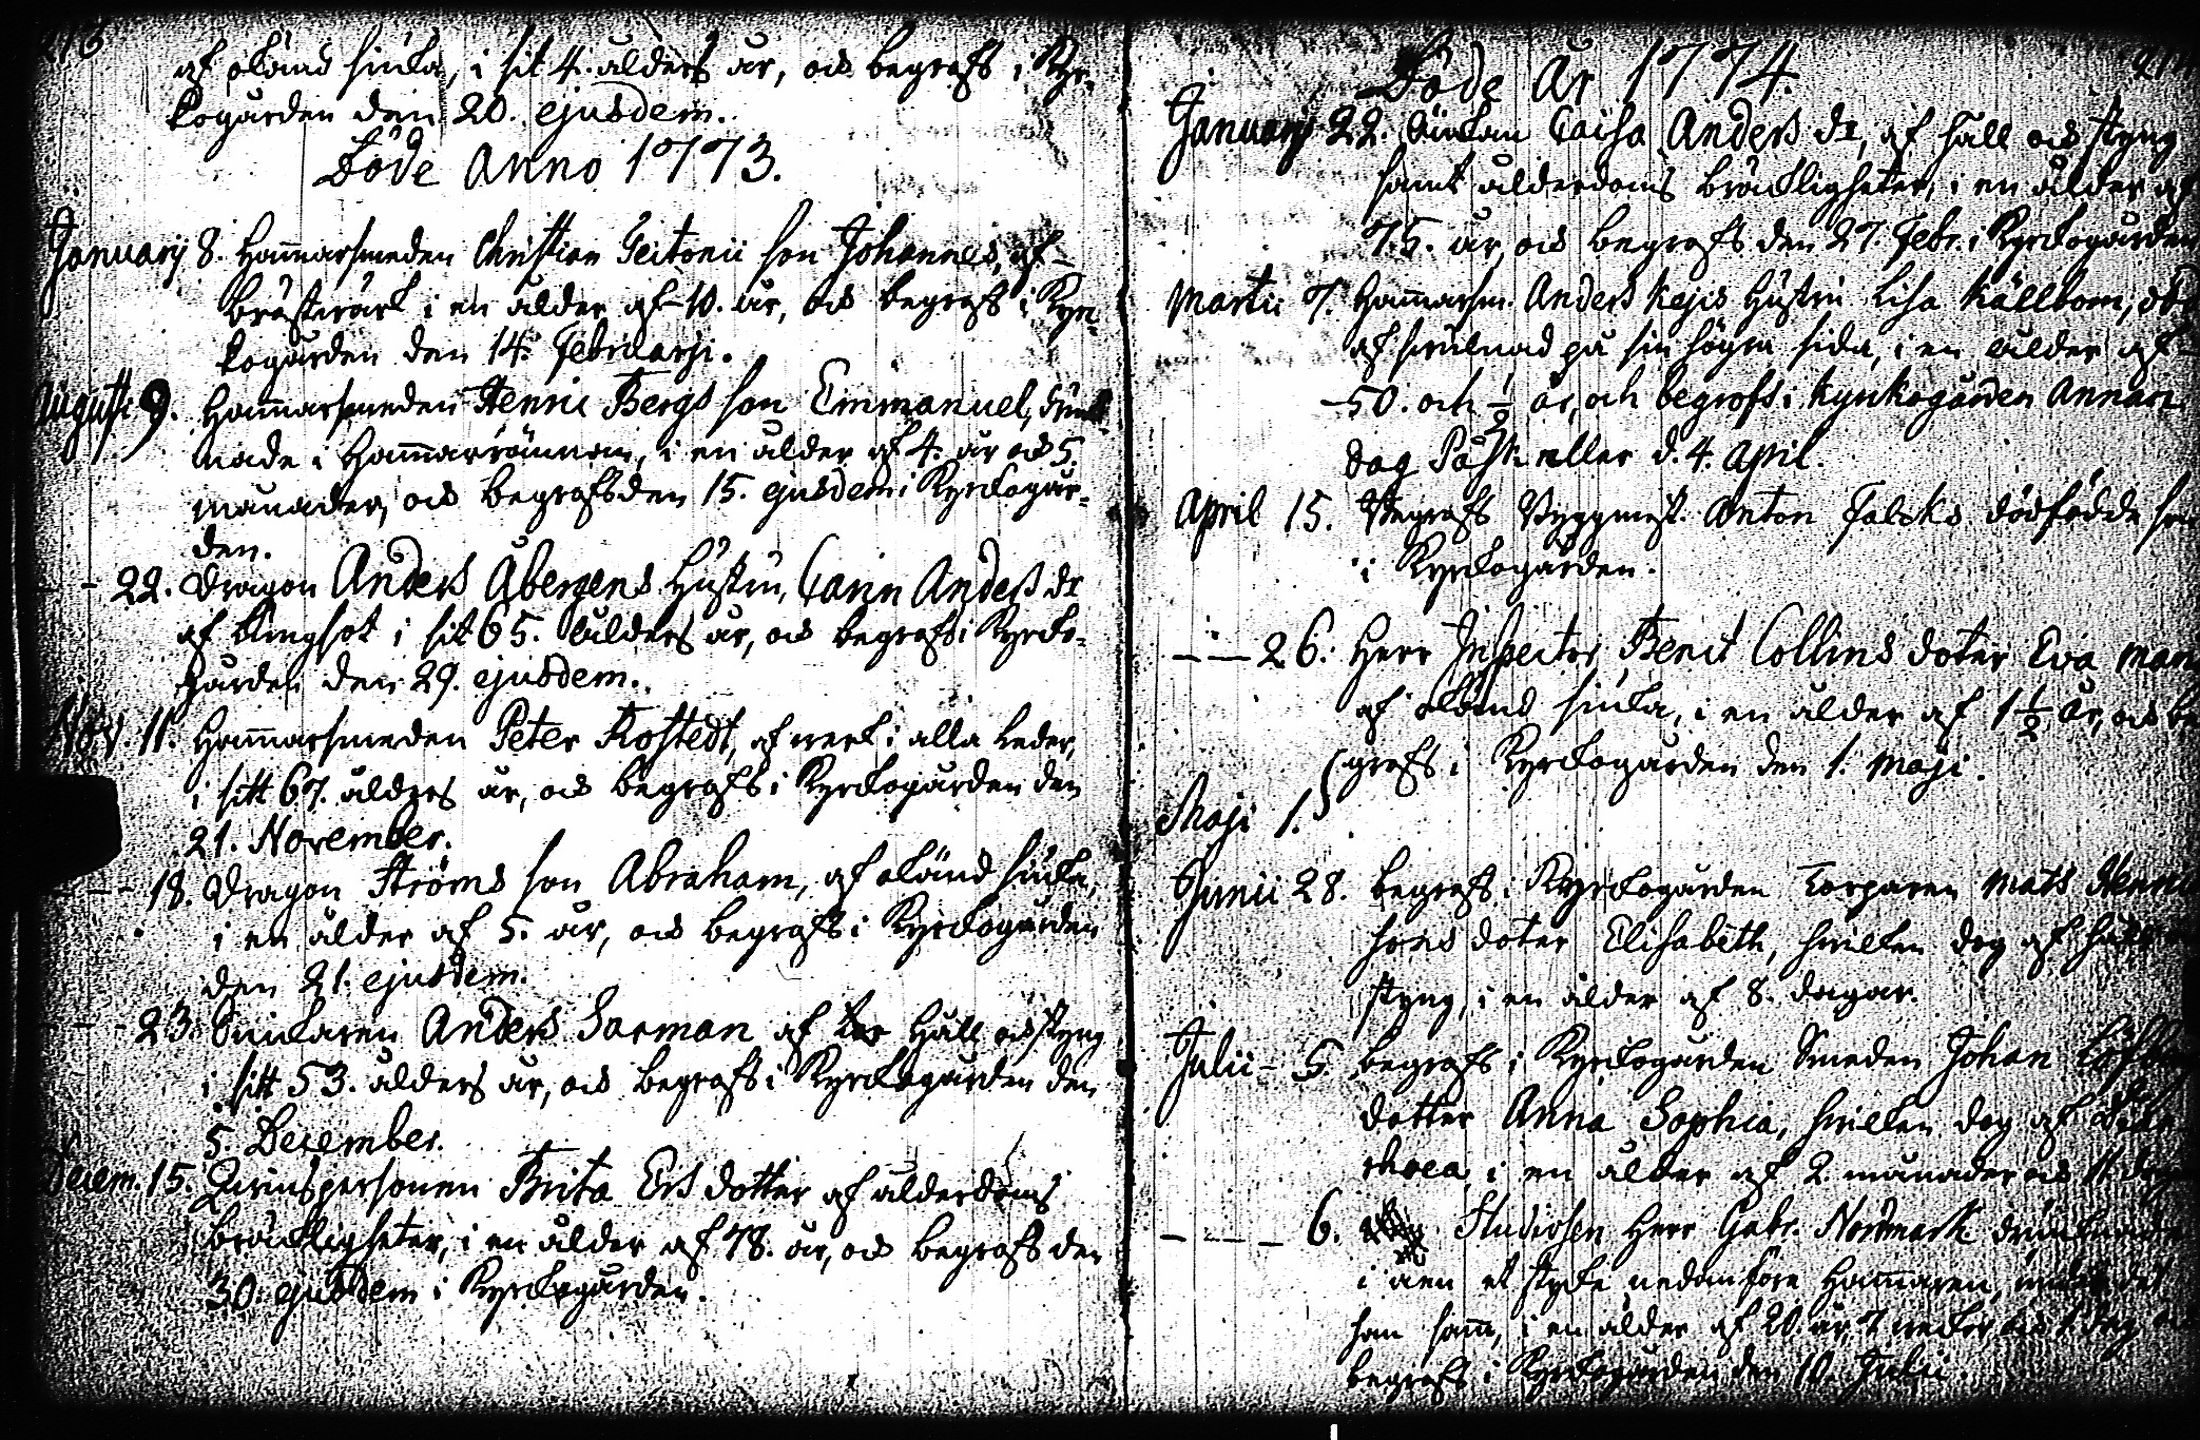 216
af okänd siuka, i sit 4. ålders år, och begrofs i Kyr-
kogården den 20. ejusdem.
Döde Anno 1773.
Januarij 8. Hammarsmeden Christian Teitonii son Johannes, af
bröstvärk i en ålder af 10. år, och begrofs i Kyr-
kogården den 14. Februarji.
Augusti 9. Hammarsmeden Henric Bergs son Emmanuel, drunk-
nade i Hammarrännan, i en ålder af 4. år och 5.
månader, och begrofs den 15. ejusdem i Kyrkogår-
den.
- 22. Dragon Anders Åbergens Hustru, Carin Anders dr
af lungsot i sit 65. ålders år, och begrofs i Kyrko-
gården den 29. ejusdem.
Nov. 11. Hammarsmeden Peter Rostedt, af werk i alla leder,
i sitt 67. ålders år, och begrofs i Kyrkogården den
21. November.
- - 18. Dragon Ströms son Abraham, af okänd siuka,
i en ålder af 5. år, och begrofs i Kyrkogården
den 21. ejusdem.
- - 23. Snickaren Anders Sarman af håll och styng
i sitt 53. ålders år, och begrofs i Kyrkogården den
5. December.
Decem. 15. Qvinspersonen Brita Ers dotter af ålderdoms
bräckligheter, i en ålder af 78. år, och begrofs den
30. ejusdem i Kyrkogården.
Döde År 1774.
Januarij 22. Änkan Caisa Anders dr, af håll och styng
samt ålderdoms bräckligheter, i en ålder af
75. år, och begrofs den 27. Febr. i Kyrkogården
Martii 7. Hammarsm. Anders Kejis Hustru Lisa Källbom, dog
af svulnad på sin högra sida, i en ålder af
50. och 1/2 år, och begrofs i Kyrkogården Annan
dag Påsk eller d. 4. April.
April 15. Begrofs Byggmest. Anton Falcks dödfödde son
i Kyrkogården.
- - 26. Herr Inspector Benct Collins doter Eva
af okänd siuka, i en ålder af 1 1/2 år, och be-
grofs i Kyrkogården den 1. Maji.
Maji 1.
Junii 28. begrofs i Kyrkogården Torparen Mats Henric
sons doter Elisabeth, hvilken dog af håll
styng, i en ålder af 8. dagar.
Julii - 5. begrofs i Kyrkogården Smeden Johan
dotter Anna Sophia, hvilken dog af Diar
rhoea, i en ålder af 2. månader och 11. dagar
- - - 6. Studiosen Herr Gabr. Nordmark drunknade
i åen et stycke nedanföre Hammaren, under det
han sam, i en ålder af 20. år 7. weckor och 1. dag
begrofs i Kyrkogården den 10. Julii.